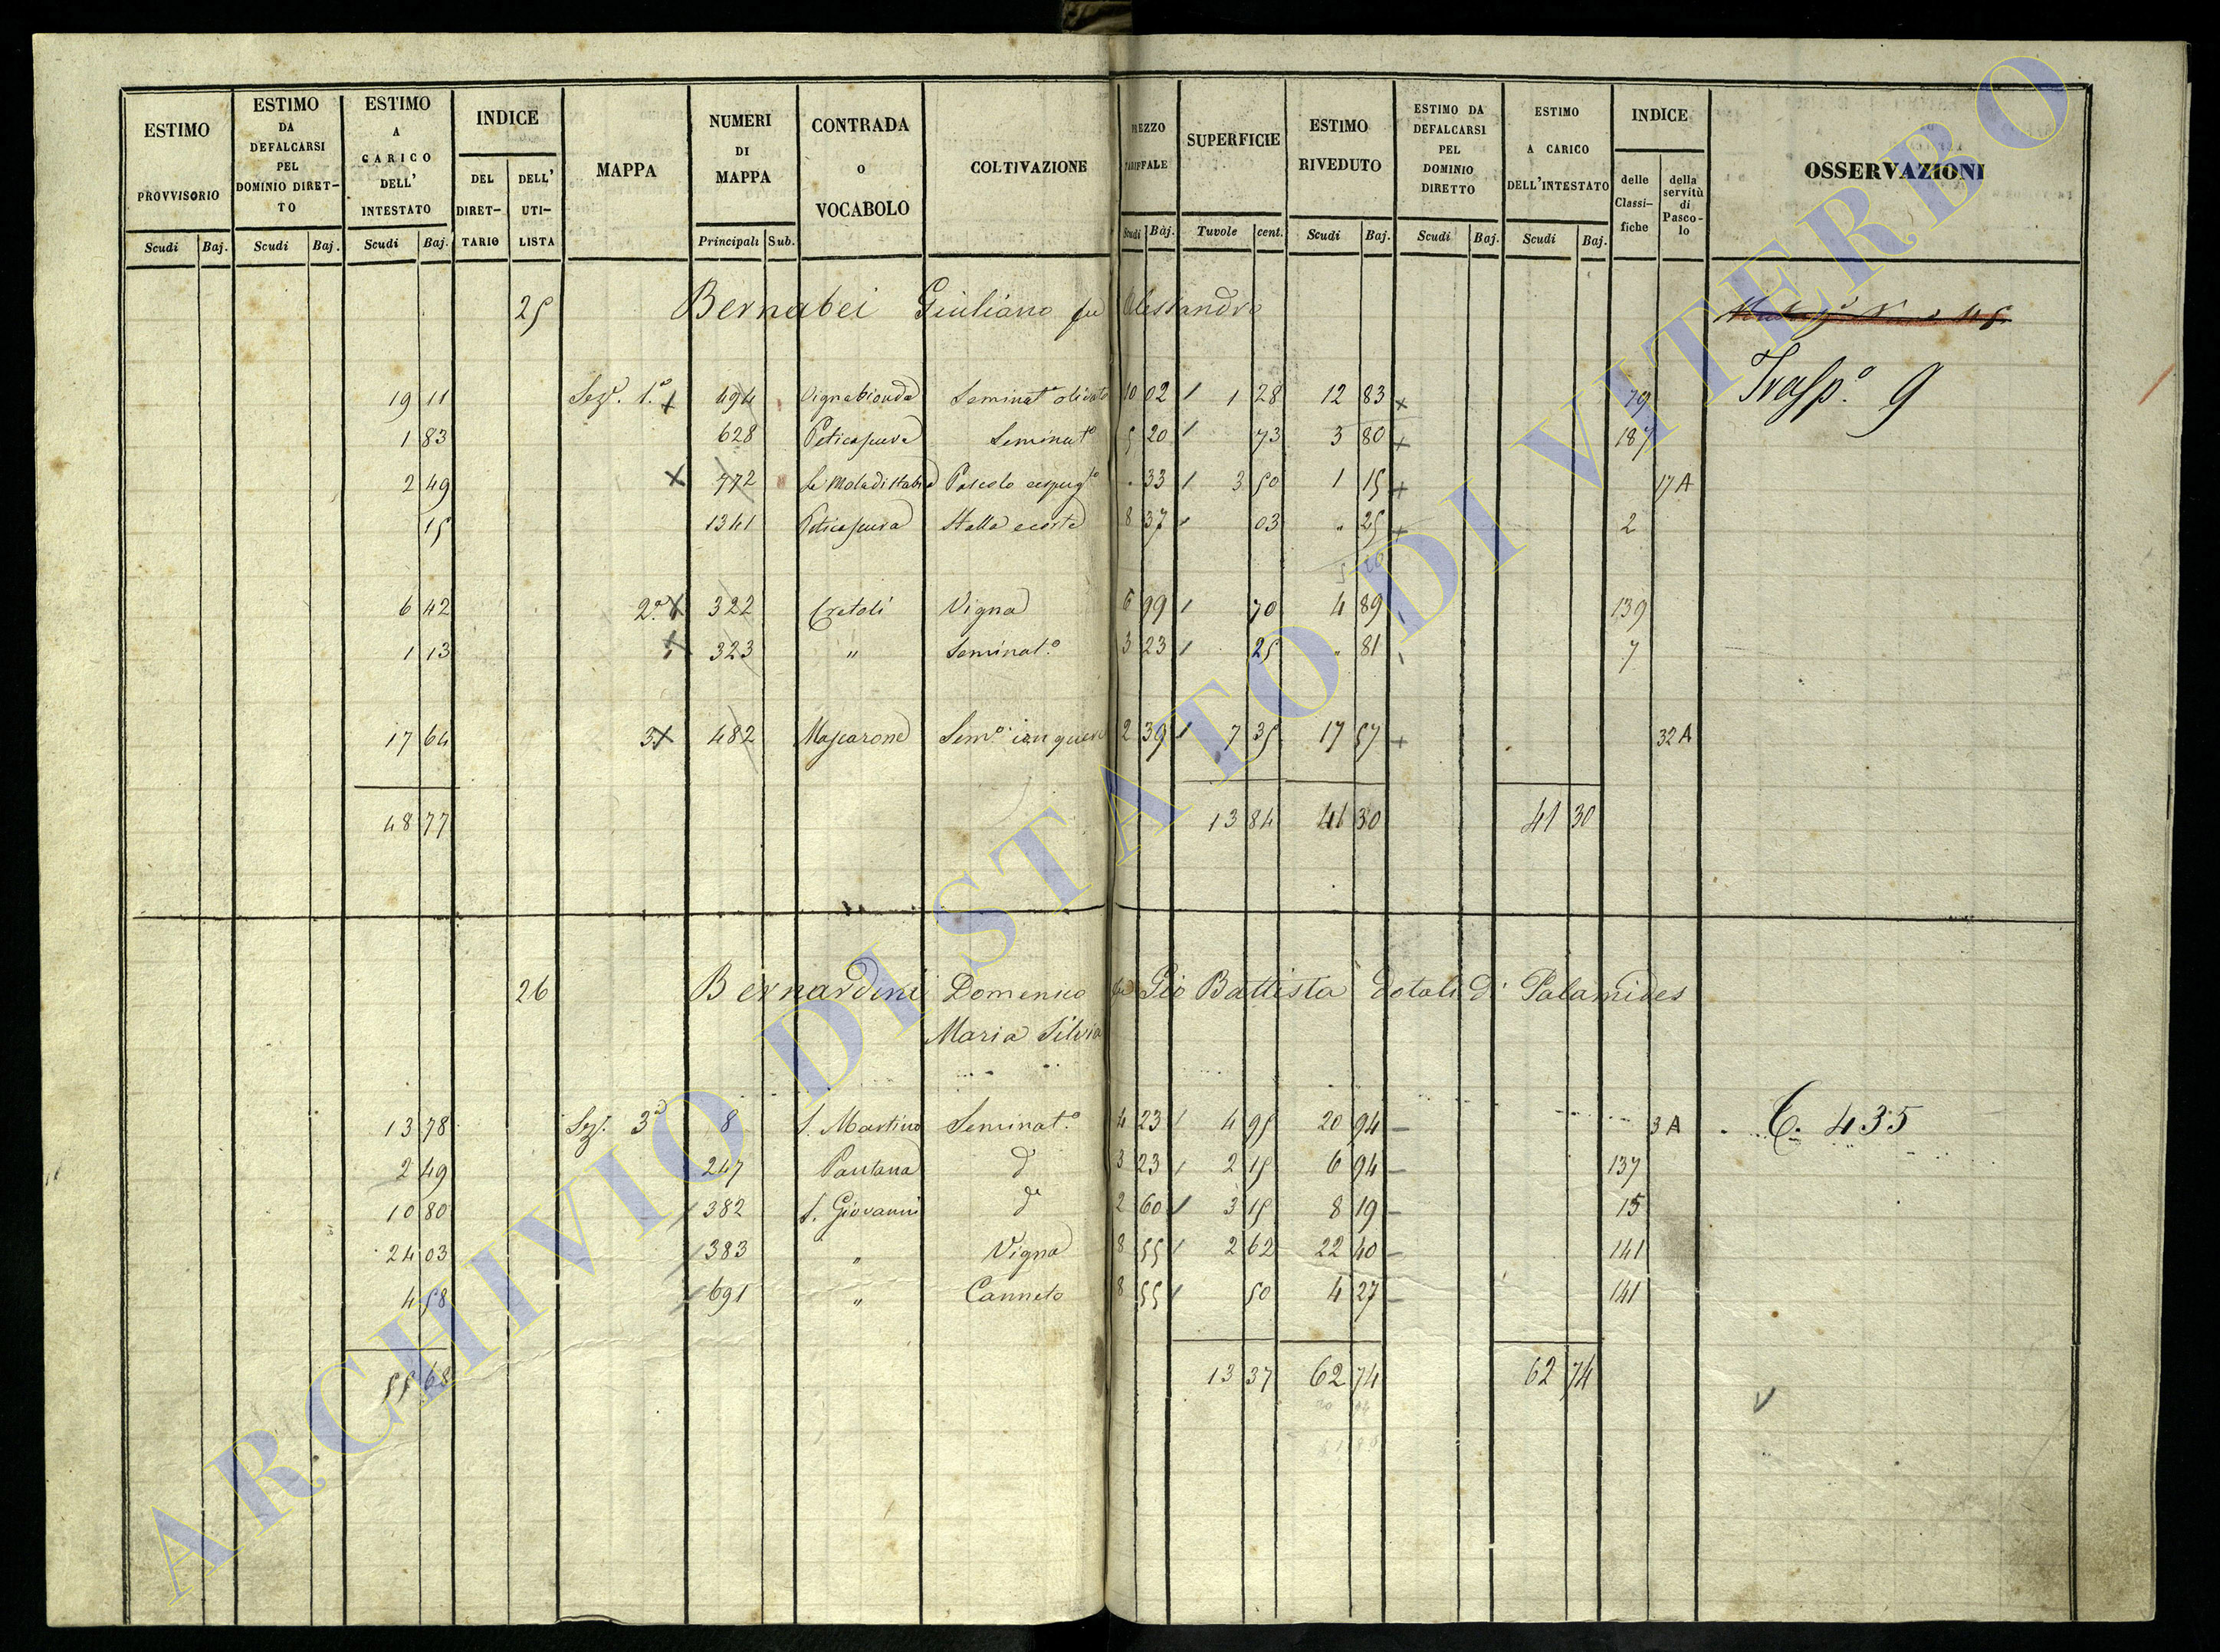 ESTIMO PROVVISORIO | ESTIMO DA DEFALCARSI PEL DOMINIO DIRETTO | ESTIMO A CARICO DELL' INTESTATO | INDICE DEL DIRETTARIO | DELL' UTILISTA | MAPPA | NUMERI DI MAPPA | CONTRADA o VOCABOLO | COLTIVAZIONE | PREZZO TARIFFALE | SUPERFICIE | ESTIMO RIVEDUTO | ESTIMO DA DEFALCARSI PEL DOMINIO DIRETTO | ESTIMO A CARICO DELL'INTESTATO | INDICE delle Classifiche | della servitù di Pascolo | OSSERVAZIONI
Scudi | Baj. | Scudi | Baj. | Scudi | Baj. | Principali | Sub. | Scudi | Baj. | Tavole | cent. | Scudi | Baj. | Scudi | Baj. | Scudi | Baj.
25 Bernabei Giuliano fu Alessandro
19 11 Sezº. 1.ª 494 Vignabionda Seminatº olivato 10 02 1 28 12 83 79 Trasp.º 9
1 83 628 Seminatº 5 20 73 3 80 187
2 49 772 Pascolo cespugº 33 3 50 1 15 17 A
15 1341 Stalla e corte 8 37 03 " 25 2
6 42 2.ª 322 Cretoli Vigna 6 99 70 4 89 139
1 13 323 " Seminat.º 3 23 25 " 81 7
17 64 3ª 482 Mascarone Sem.º 2 39 7 35 17 57 32 A
48 77 13 84 41 30 41 30
26 Bernardini Domenico fu Gio Battista dotali di Palamides
Maria Silvia
13 78 Sez. 3ª 8 S. Martino Seminat.º 4 23 4 95 20 94 3 A C. 435
2 49 247 Pantana dº 3 23 2 15 6 94 137
10 80 382 S. Giovanni dº 2 60 3 15 8 19 15
24 03 383 " Vigna 8 55 2 62 22 40 141
4 58 691 " Canneto 8 55 50 4 27 141
55 68 13 37 62 74 62 74
ARCHIVIO DI STATO DI VITERBO